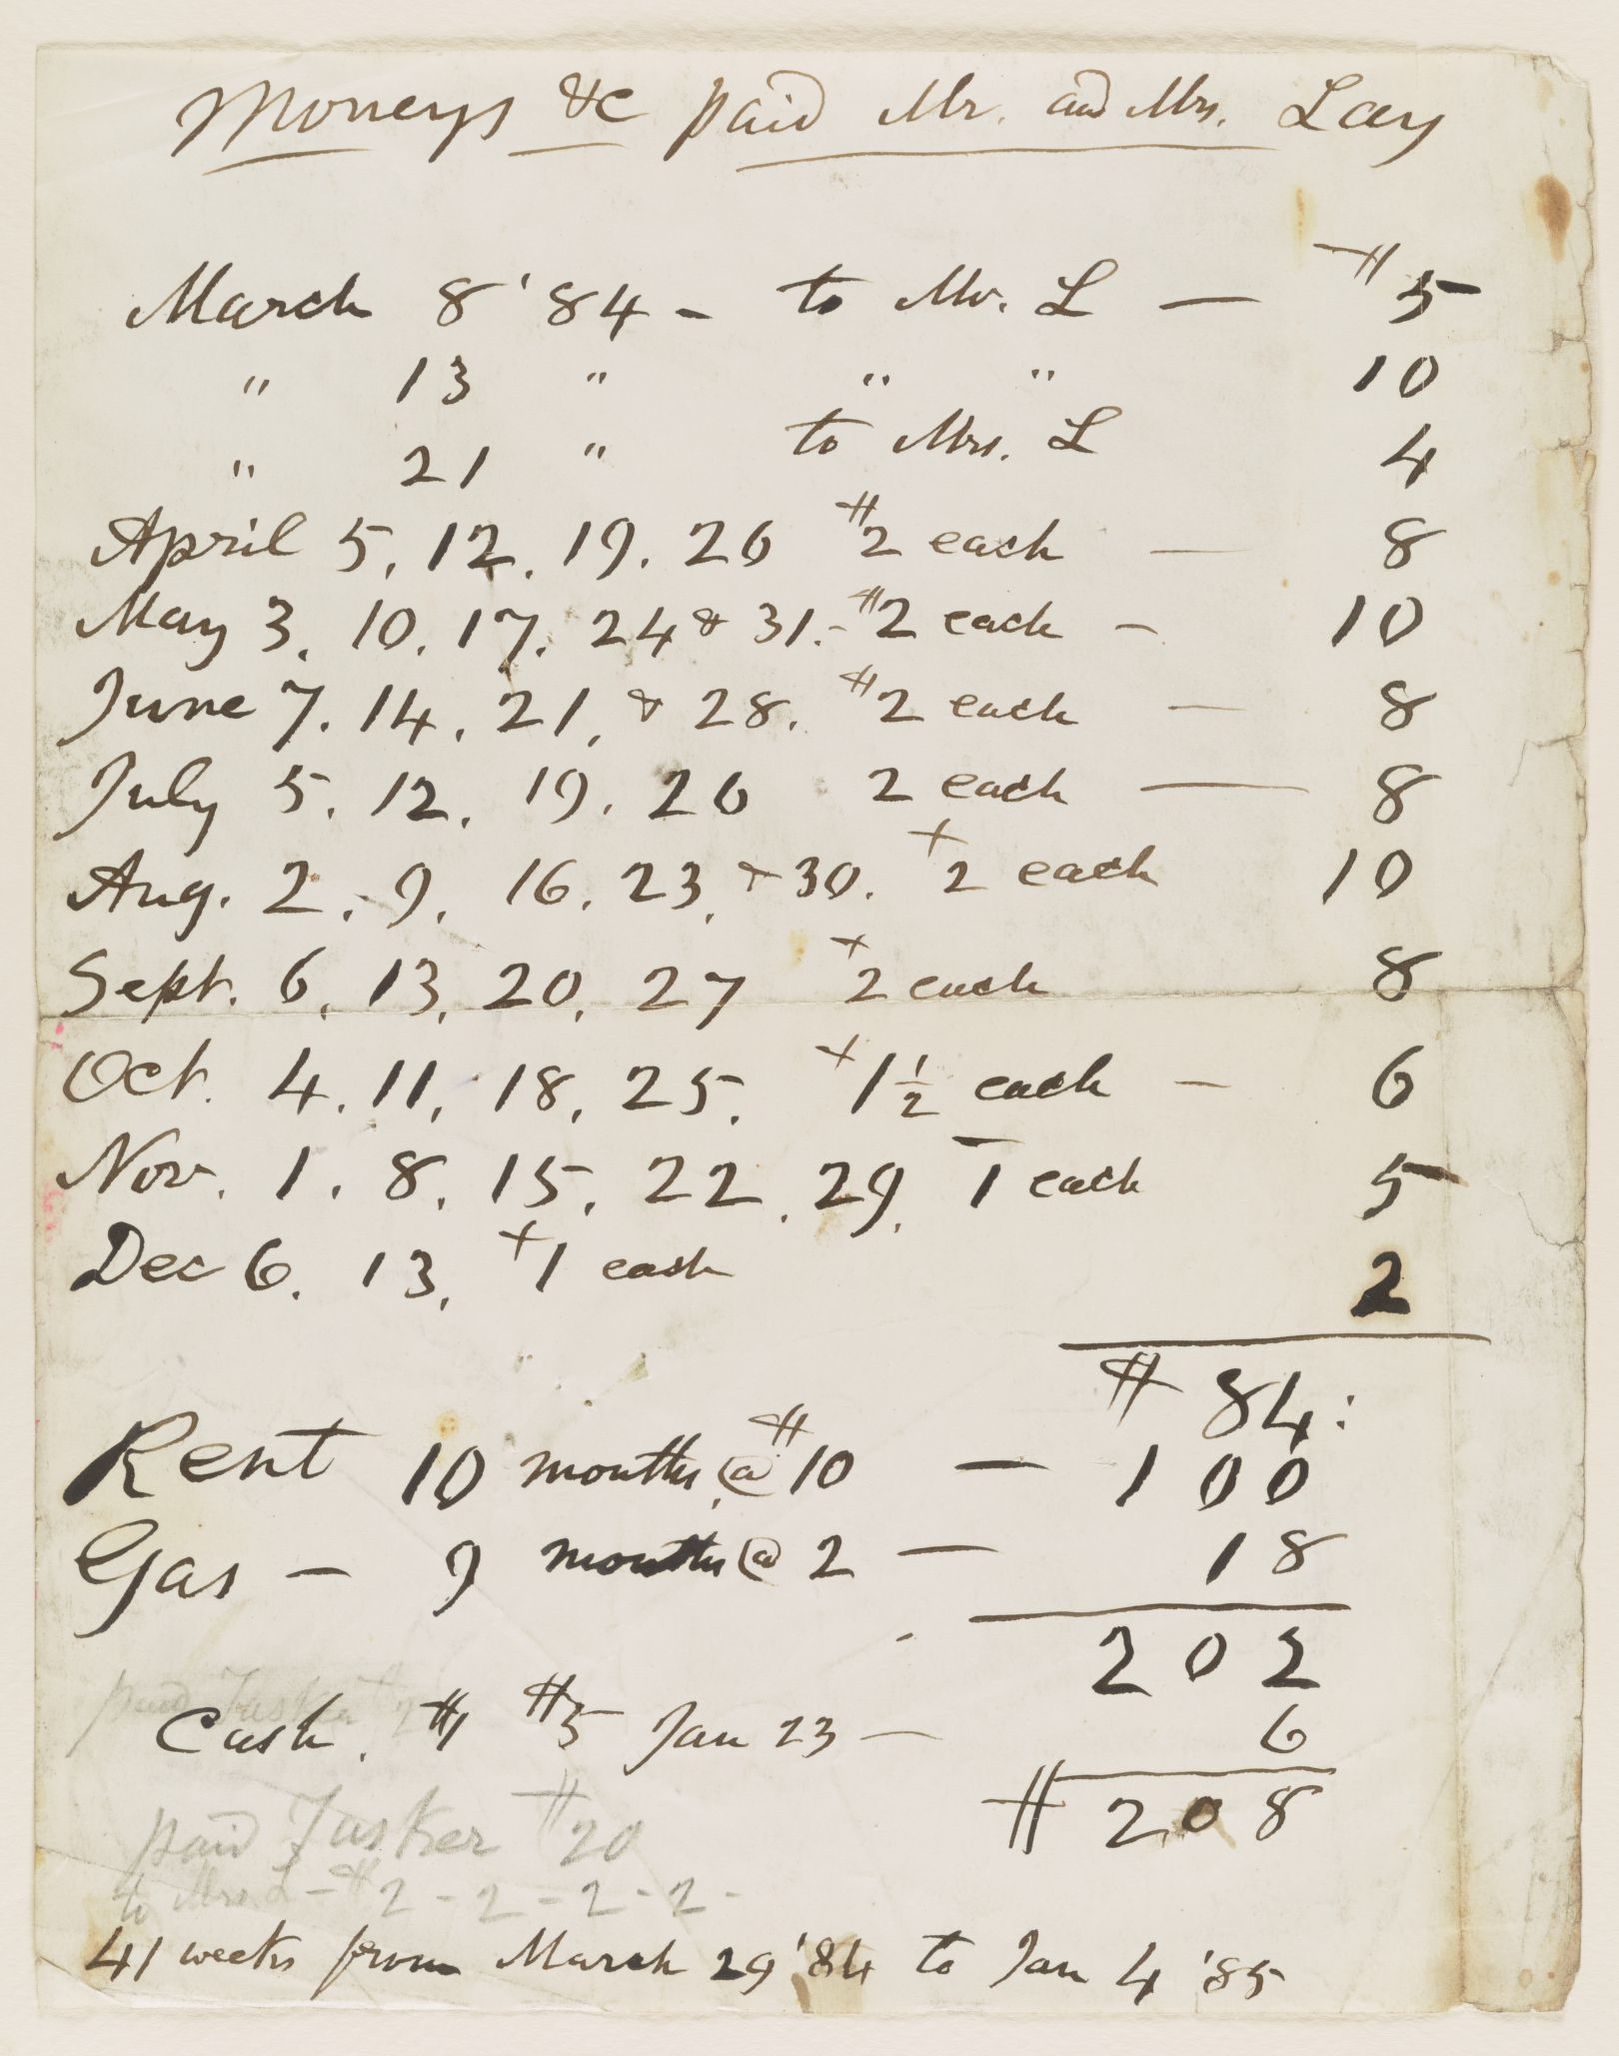 Moneys &c paid Mr. and Mrs. Lay
March 8 '84 - to Mr. L — $5
" 13 " " " 10
" 21 " to Mrs. L 4
April 5, 12, 19, 26 $2 each — 8
May 3, 10, 17, 24 & 31. - $2 each - 10
June 7, 14, 21, & 28. $2 each — 8
July 5, 12, 19, 26 2 each — 8
Aug. 2, 9, 16, 23, & 30. + 2 each 10
Sept. 6, 13, 20, 27 + 2 each 8
Oct. 4, 11, 18, 25. + 1 1/2 each - 6
Nov. 1, 8, 15, 22, 29, 1 each 5
Dec 6, 13, + 1 each 2
$84:
Rent 10 months @ $10 — 100
Gas — 9 months @ 2 — 18
202
paid Tasker
Cash. $1 $5 Jan 23 — 6
$208
paid Tasker $20
to Mrs L - $2 - 2 - 2 - 2 -
41 weeks from March 29 '84 to Jan 4 '85